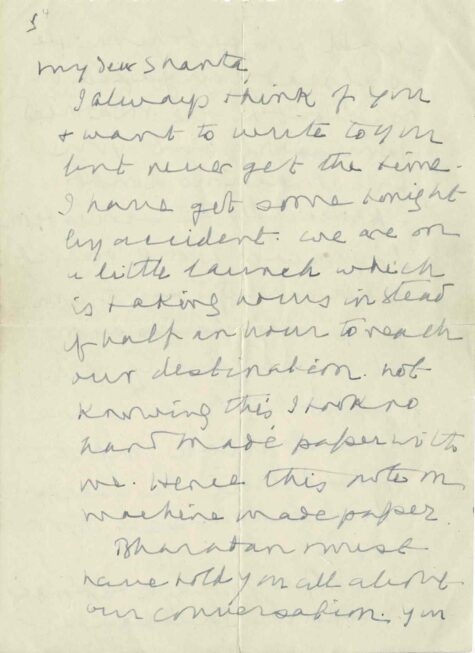 My dear Shanta,
I always think of you
& want to write to you
but never get the time.
I have got some tonight
by accident. We are on
a little launch which
is taking hours instead
of half an hour to reach
our destination. Not
knowing this I took no
hand made paper with
me. Hence this note on
machine made paper.
Bharatan must
have told you all about
our conversation. You